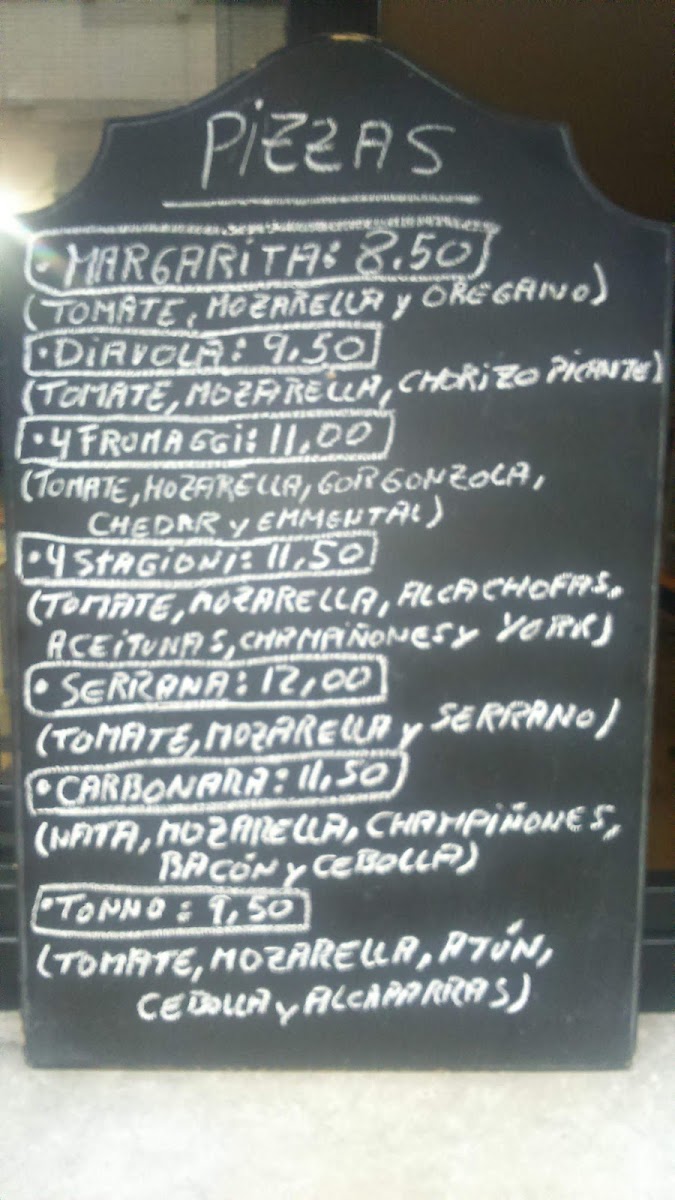 PiZZAS
• MARGARiTA: 8.50
(TOMATE, MOZARELLA y OREGANO)
• DiAVOLA: 9,50
(TOMATE, MOZARELLA, CHORIZO PICANTE)
• 4 FROMAGGi: 11,00
(TOMATE, MOZARELLA, GORGONZOLA,
CHEDAR y EMMENTAL)
• 4 STAGIONi: 11,50
(TOMATE, MOZARELLA, ALCACHOFAS,
ACEITUNAS, CHAMPIÑONES y YORK)
• SERRANA: 12,00
(TOMATE, MOZARELLA y SERRANO)
• CARBONARA: 11,50
(NATA, MOZARELLA, CHAMPIÑONES,
BACÓN y CEBOLLA)
• TONNO: 9,50
(TOMATE, MOZARELLA, ATÚN,
CEBOLLA y ALCAPARRAS)